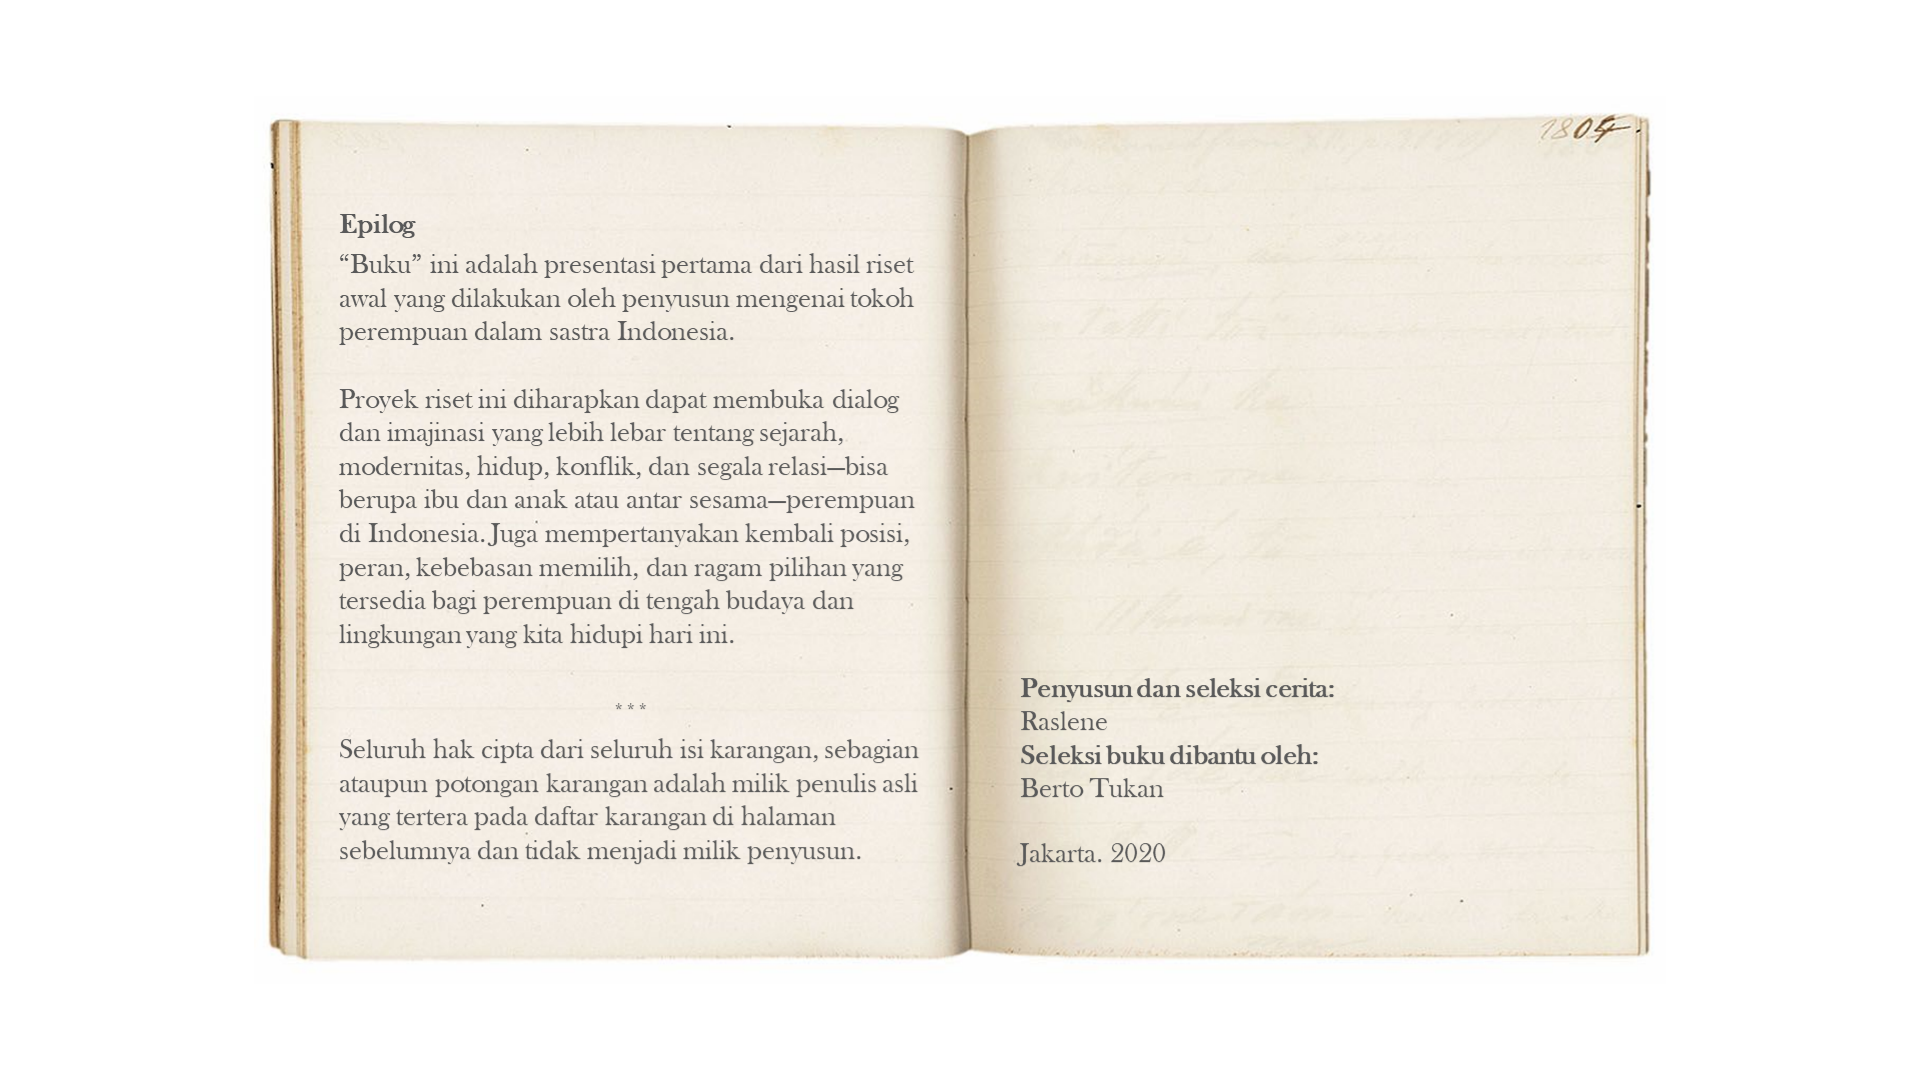 Epilog
“Buku” ini adalah presentasi pertama dari hasil riset
awal yang dilakukan oleh penyusun mengenai tokoh
perempuan dalam sastra Indonesia.
Proyek riset ini diharapkan dapat membuka dialog
dan imajinasi yang lebih lebar tentang sejarah,
modernitas, hidup, konflik, dan segala relasi—bisa
berupa ibu dan anak atau antar sesama—perempuan
di Indonesia. Juga mempertanyakan kembali posisi,
peran, kebebasan memilih, dan ragam pilihan yang
tersedia bagi perempuan di tengah budaya dan
lingkungan yang kita hidupi hari ini.
***
Seluruh hak cipta dari seluruh isi karangan, sebagian
ataupun potongan karangan adalah milik penulis asli
yang tertera pada daftar karangan di halaman
sebelumnya dan tidak menjadi milik penyusun.
1804
Penyusun dan seleksi cerita:
Raslene
Seleksi buku dibantu oleh:
Berto Tukan
Jakarta. 2020